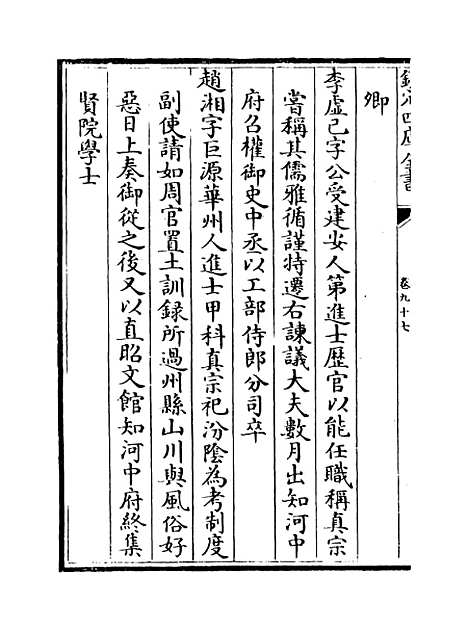 欽定四庫全書
卷九十七
卿
李虛己字公受建安人第進士歷官以能任職稱真宗
嘗稱其儒雅循謹特遷右諫議大夫數月出知河中
府召權御史中丞以工部侍郎分司卒
趙湘字巨源華州人進士甲科真宗祀汾陰為考制度
副使請如周官置土訓録所過州縣山川與風俗好
惡日上奏御從之後又以直昭文館知河中府終集
賢院學士